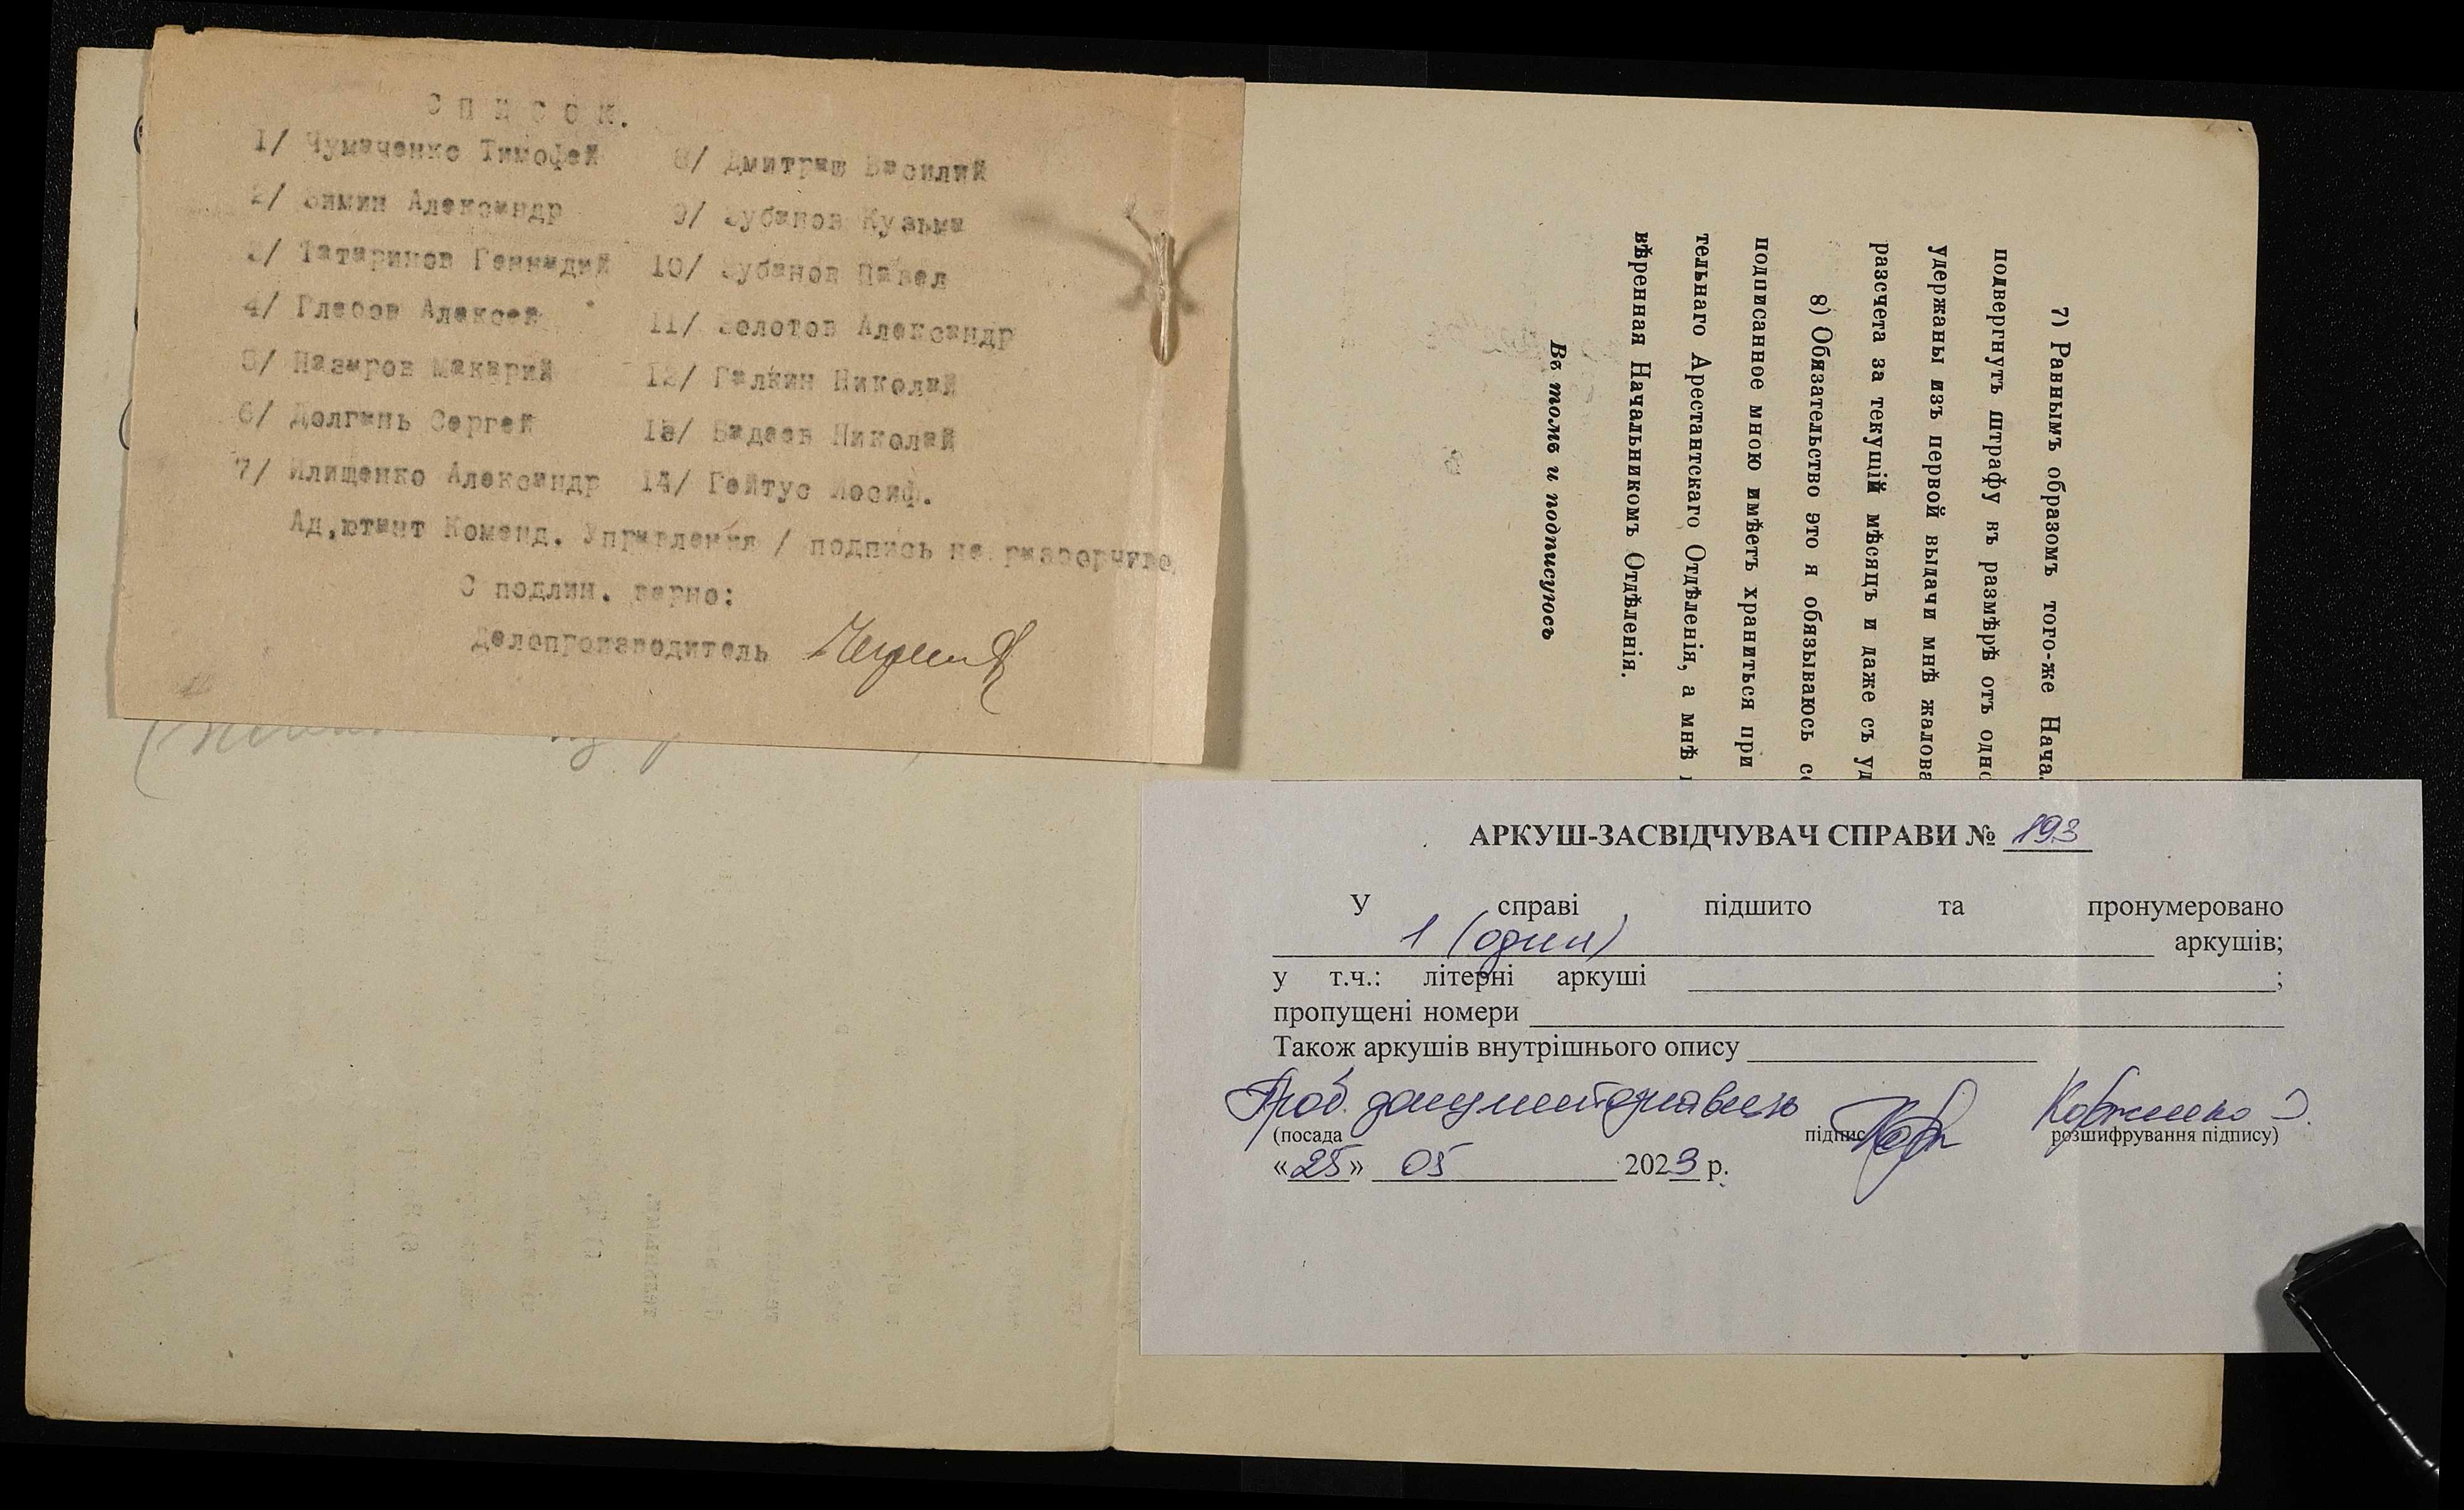 С п и с о к.
1/ Чумаченко Тимофей
2/ Зимин Александр
3/ Татаринов Геннадий
4/ Глебов Алексей
5/ Назаров Макарий
6/ Долгань Сергей
7/ Илищенко Александр
8/ Дмитраш Василий
9/ Зубанов Кузьма
10/ Зубанов Павел
11/ Золотов Александр
12/ Галкин Николай
13/ Бадаев Николай
14/ Гейтус Иосиф.
Ад,ютант Команд. Управления / подпись не разборчиво
С подлин. верно:
Делопроизводитель
7) Равнымъ образомъ того-же Нача
подвергнуть штрафу въ размѣрѣ отъ одно
удержаны изъ первой выдачи мнѣ жалова
разсчета за текущій мѣсяцъ и даже съ уд
8) Обязательство это я обязываюсь с
подписанное мною имѣетъ храниться при
тельнаго Арестантскаго Отдѣленія, а мнѣ
вѣренная Начальникомъ Отдѣленія.
Въ томъ и подписуюсь
АРКУШ-ЗАСВІДЧУВАЧ СПРАВИ № 193
У справі підшито та пронумеровано
1 (один) аркушів;
у т.ч.: літерні аркуші ;
пропущені номери
Також аркушів внутрішнього опису
Пров. документознавець
(посада підпис розшифрування підпису)
«25» 05 2023 р.